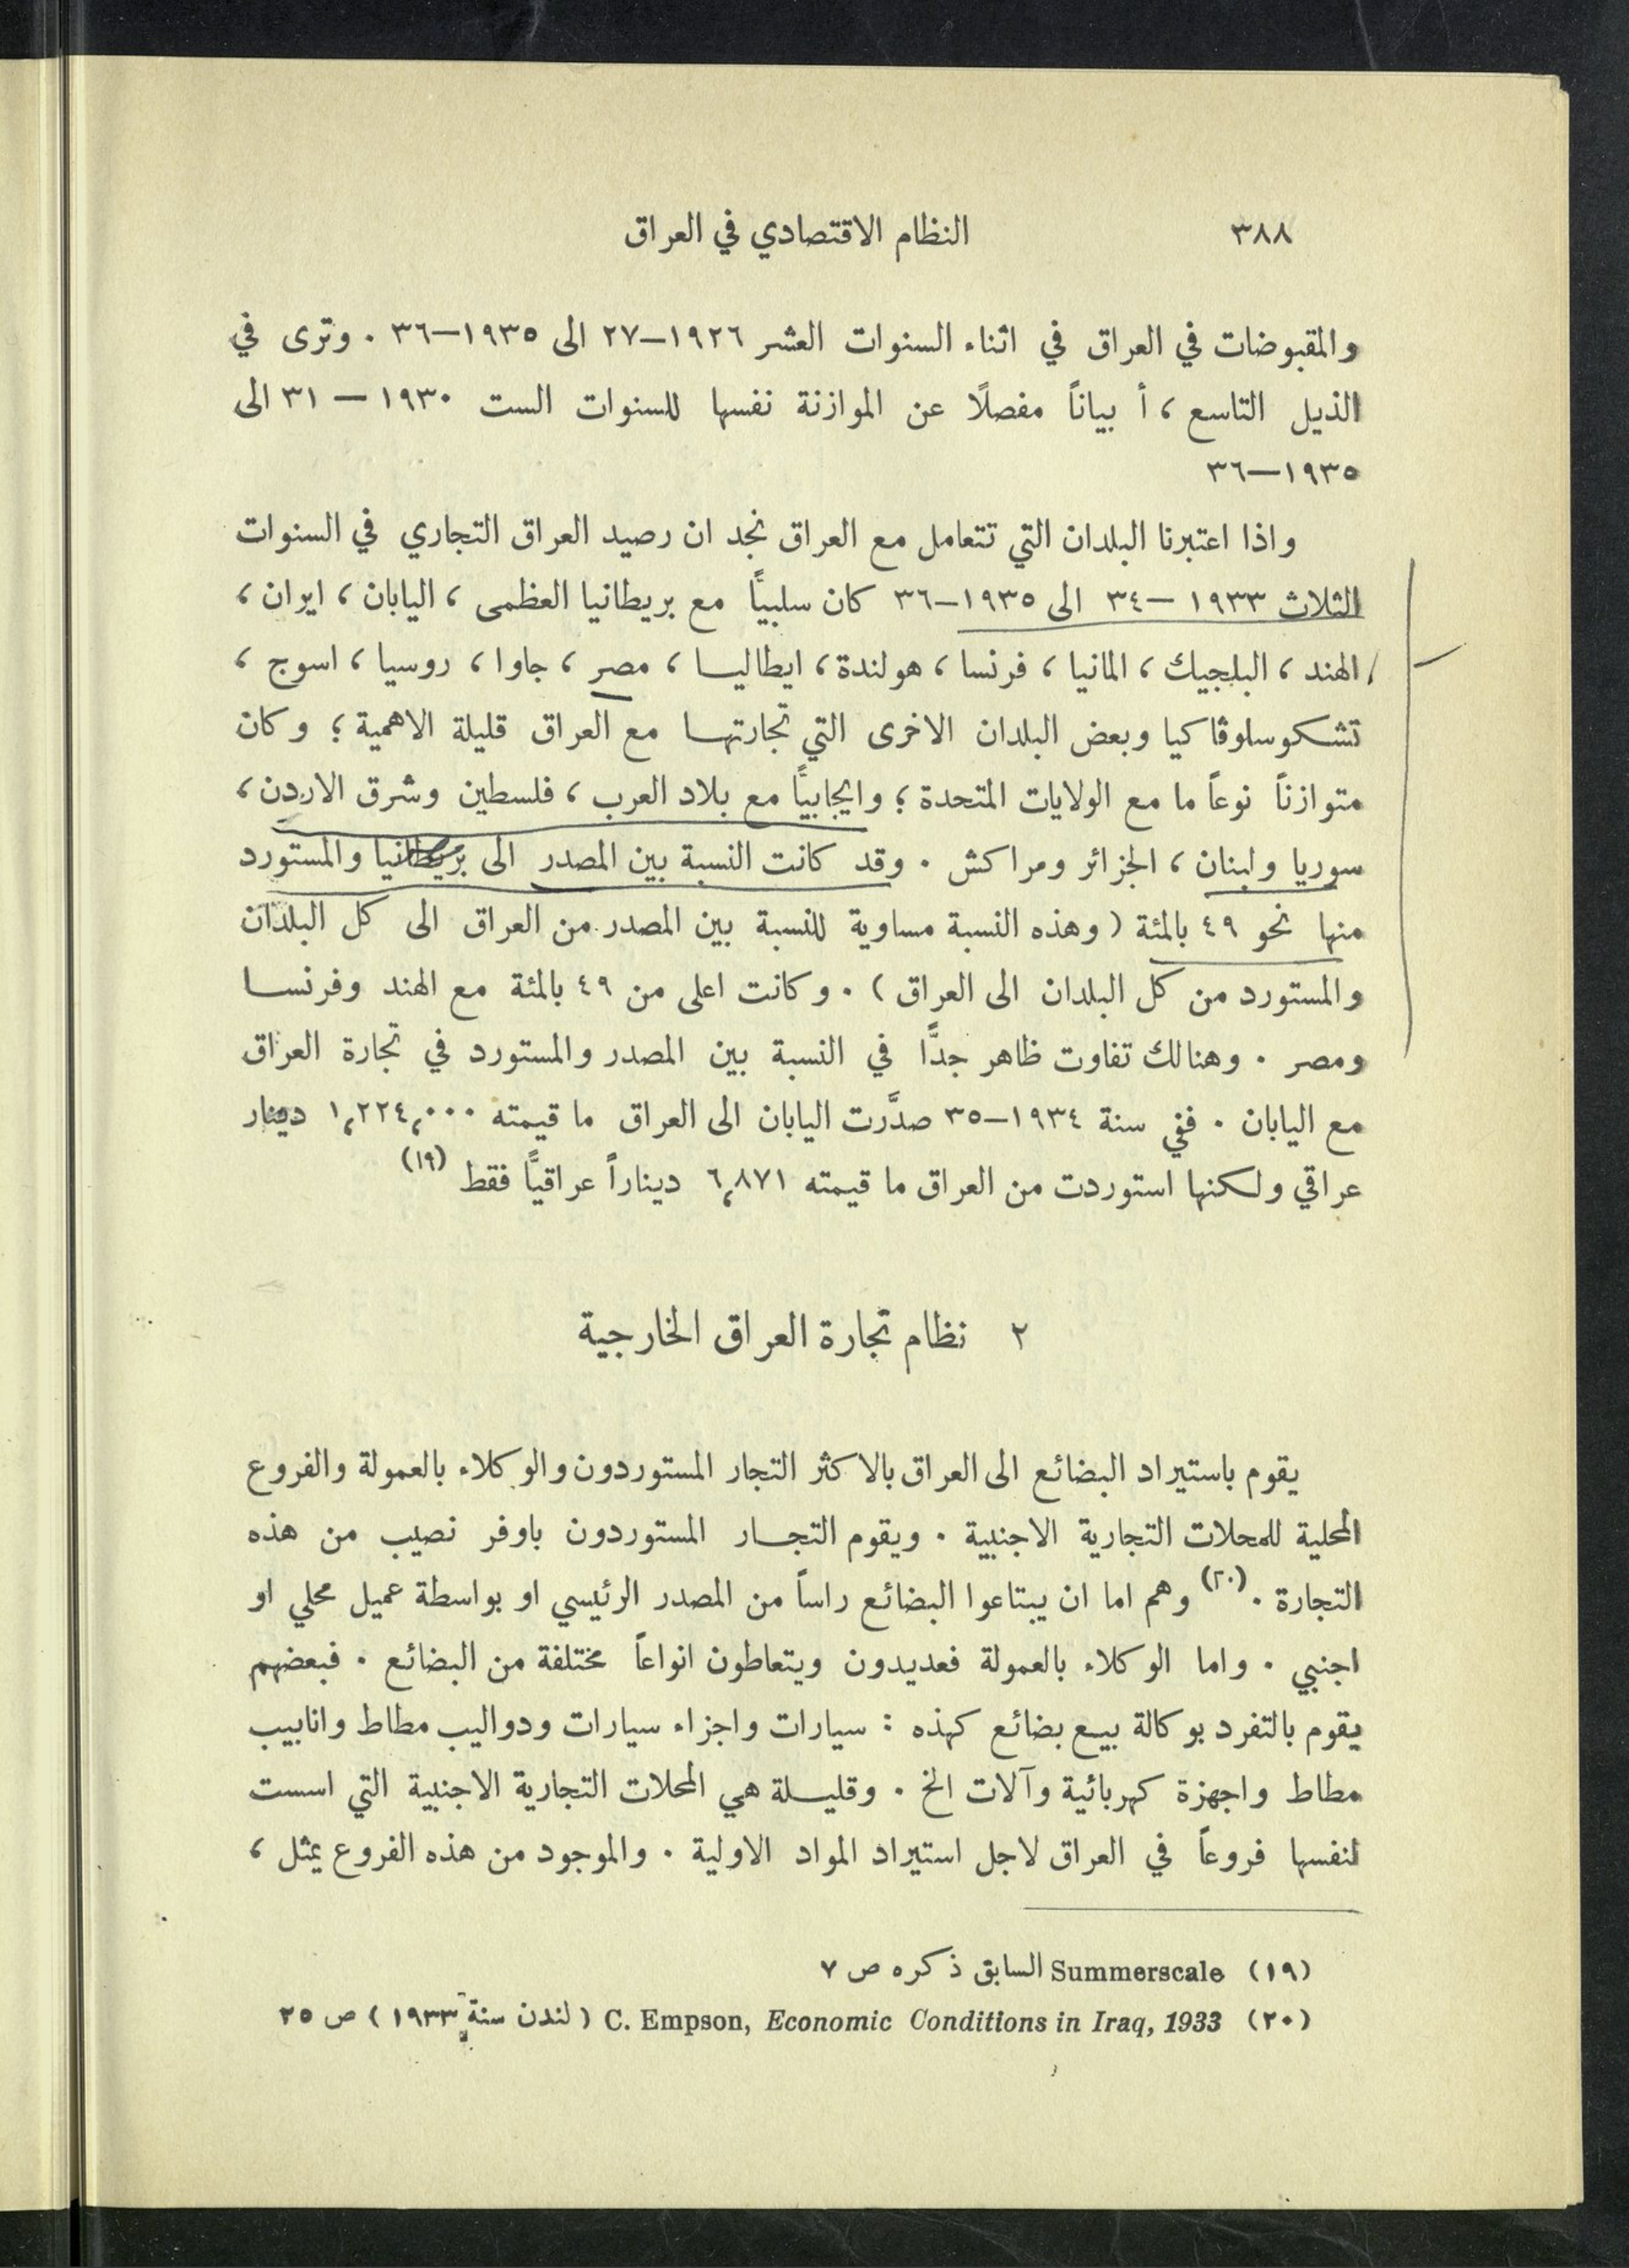 ٣٨٨ النظام الاقتصادي في العراق
والمقبوضات في العراق في اثناء السنوات العشر ١٩٢٦–٢٧ الى ١٩٣٥–٣٦ . وترى في
الذيل التاسع ، أ بياناً مفصلاً عن الموازنة نفسها للسنوات الست ١٩٣٠ – ٣١ الى
١٩٣٥–٣٦
واذا اعتبرنا البلدان التي تتعامل مع العراق نجد ان رصيد العراق التجاري في السنوات
الثلاث ١٩٣٣ –٣٤ الى ١٩٣٥–٣٦ كان سلبياً مع بريطانيا العظمى ، اليابان ، ايران ،
الهند ، البلجيك ، المانيا ، فرنسا ، هولندة ، ايطاليا ، مصر ، جاوا ، روسيا ، اسوج ،
تشكوسلوڤاكيا وبعض البلدان الاخرى التي تجارتها مع العراق قليلة الاهمية ؛ وكان
متوازناً نوعاً ما مع الولايات المتحدة ؛ وايجابياً مع بلاد العرب ، فلسطين وشرق الاردن ،
سوريا ولبنان ، الجزائر ومراكش . وقد كانت النسبة بين المصدر الى بريطانيا والمستورد
منها نحو ٤٩ بالمئة ( وهذه النسبة مساوية للنسبة بين المصدر من العراق الى كل البلدان
والمستورد من كل البلدان الى العراق ) . وكانت اعلى من ٤٩ بالمئة مع الهند وفرنسا
ومصر . وهنالك تفاوت ظاهر جدًّا في النسبة بين المصدر والمستورد في تجارة العراق
مع اليابان . ففي سنة ١٩٣٤–٣٥ صدَّرت اليابان الى العراق ما قيمته ١،٢٢٤،٠٠٠ دينار
عراقي ولكنها استوردت من العراق ما قيمته ٦،٨٧١ ديناراً عراقيًّا فقط (١٩)
٢ نظام تجارة العراق الخارجية
يقوم باستيراد البضائع الى العراق بالاكثر التجار المستوردون والوكلاء بالعمولة والفروع
المحلية للمحلات التجارية الاجنبية . ويقوم التجار المستوردون باوفر نصيب من هذه
التجارة . (٢٠) وهم اما ان يبتاعوا البضائع راساً من المصدر الرئيسي او بواسطة عميل محلي او
اجنبي . واما الوكلاء بالعمولة فعديدون ويتعاطون انواعاً مختلفة من البضائع . فبعضهم
يقوم بالتفرد بوكالة بيع بضائع كهذه : سيارات واجزاء سيارات ودواليب مطاط وانابيب
مطاط واجهزة كهربائية وآلات الخ . وقليلة هي المحلات التجارية الاجنبية التي اسست
لنفسها فروعاً في العراق لاجل استيراد المواد الاولية . والموجود من هذه الفروع يمثل ،
(١٩) Summerscale السابق ذكره ص ٧
(٢٠) C. Empson, Economic Conditions in Iraq, 1933 ( لندن سنة ١٩٣٣ ) ص ٢٥